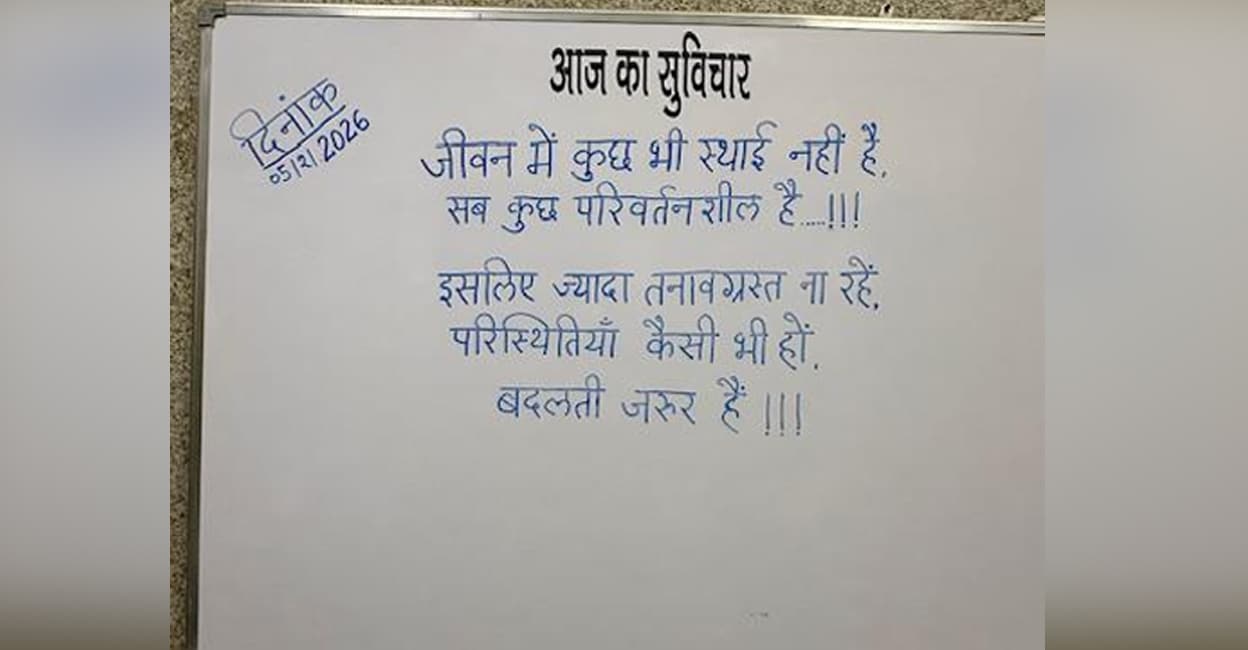 आज का सुविचार
दिनांक
05/2/2026
जीवन में कुछ भी स्थाई नहीं है,
सब कुछ परिवर्तनशील है....!!!
इसलिए ज्यादा तनावग्रस्त ना रहें,
परिस्थितियाँ कैसी भी हों,
बदलती जरुर हैं !!!